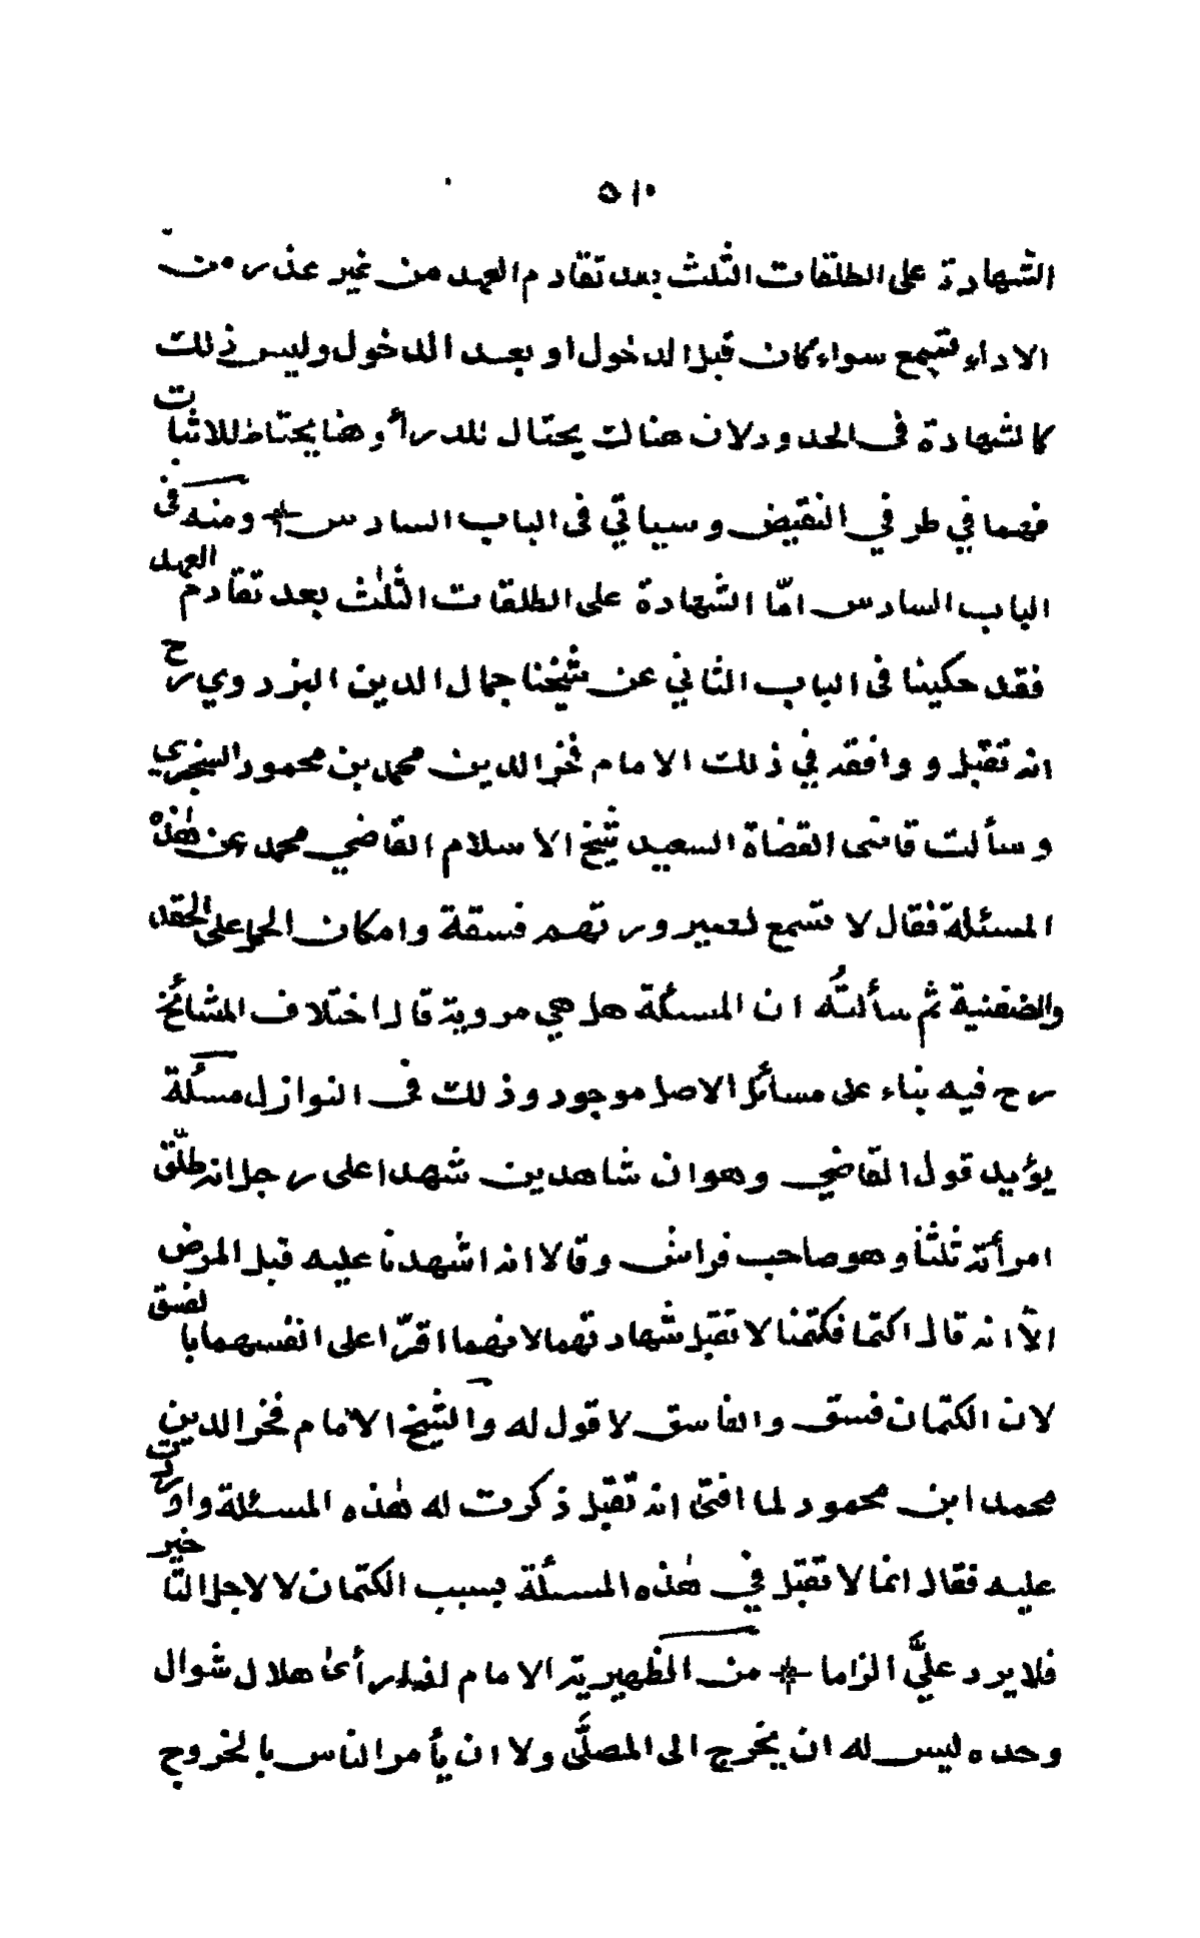 ٥١٠
الشهادة على الطلقات الثلث بعد تقادم العهد من غير عذر من
الاداء تسمع سواء كان قبل الدخول او بعد الدخول وليس ذلك
كالشهادة فى الحدود لان هناك يحتال للدرأ وهنا يحتاط للاثبات
فهما في طرفي النقيض وسياتي فى الباب السادس ومنه فى
الباب السادس امّا الشهادة على الطلقات الثلٰث بعد تقادم العهد
فقد حكينا فى الباب الثاني عن شيخنا جمال الدين البزدوي رح
انه تقبل ووافقه في ذلك الامام فخر الدين محمد بن محمود السنجري
وسألت قاضى القضاة السعيد شيخ الاسلام القاضي محمد عن هٰذه
المسئلة فقال لا تسمع لصيرورتهم فسقة وامكان الحمل على الحقد
والضغنية ثم سألتُه ان المسئلة هل هي مروية قال اختلاف المشائخ
رح فيه بناء على مسائل الاصل موجود وذلك فى النوازل مسئلة
يؤيد قول القاضي وهو ان شاهدين شهدا على رجل انه طلّق
امرأته ثلثا وهو صاحب فراش وقالا انه اشهدنا عليه قبل المرض
الّا انه قال اكتما فكتمنا لا تقبل شهادتهما لانهما اقرّا على انفسهما بالفسق
لان الكتمان فسق والفاسق لا قول له والشيخ الامام فخر الدين
محمد ابن محمود لما افتى انه تقبل ذكرت له هٰذه المسئلة واوردت
عليه فقال انما لا تقبل في هٰذه المسئلة بسبب الكتمان لا لاجل التاخير
فلا يرد عليَّ الزاما من الظهيرية الامام اذا رأى هلال شوال
وحده ليس له ان يخرج الى المصلَّى ولا ان يأمر الناس بالخروج